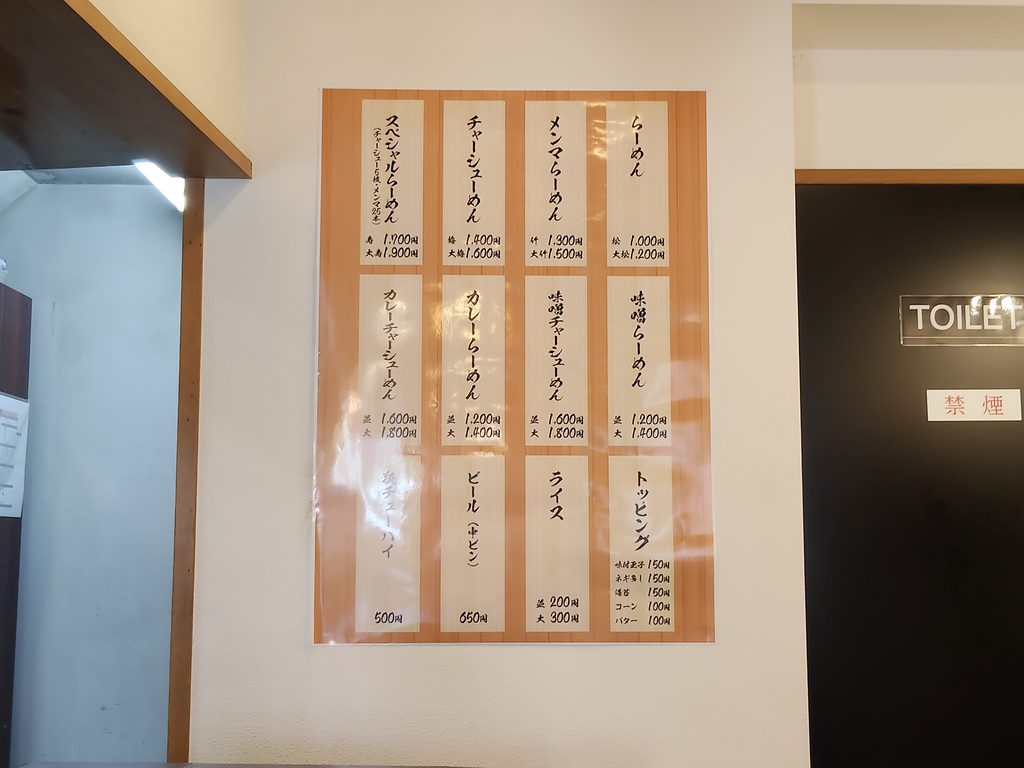 らーめん
松 1.000円
大松 1.200円
メンマらーめん
竹 1.300円
大竹 1.500円
チャーシューめん
梅 1.400円
大梅 1.600円
スペシャルらーめん
(チャーシュー5枚・メンマ25本)
寿 1.700円
大寿 1.900円
味噌らーめん
並 1.200円
大 1.400円
味噌チャーシューめん
並 1.600円
大 1.800円
カレーらーめん
並 1.200円
大 1.400円
カレーチャーシューめん
並 1.600円
大 1.800円
トッピング
味付玉子 150円
ネギ多し 150円
海苔 150円
コーン 100円
バター 100円
ライス
並 200円
大 300円
ビール (中ビン)
650円
瓶チューハイ
500円
TOILET
禁煙